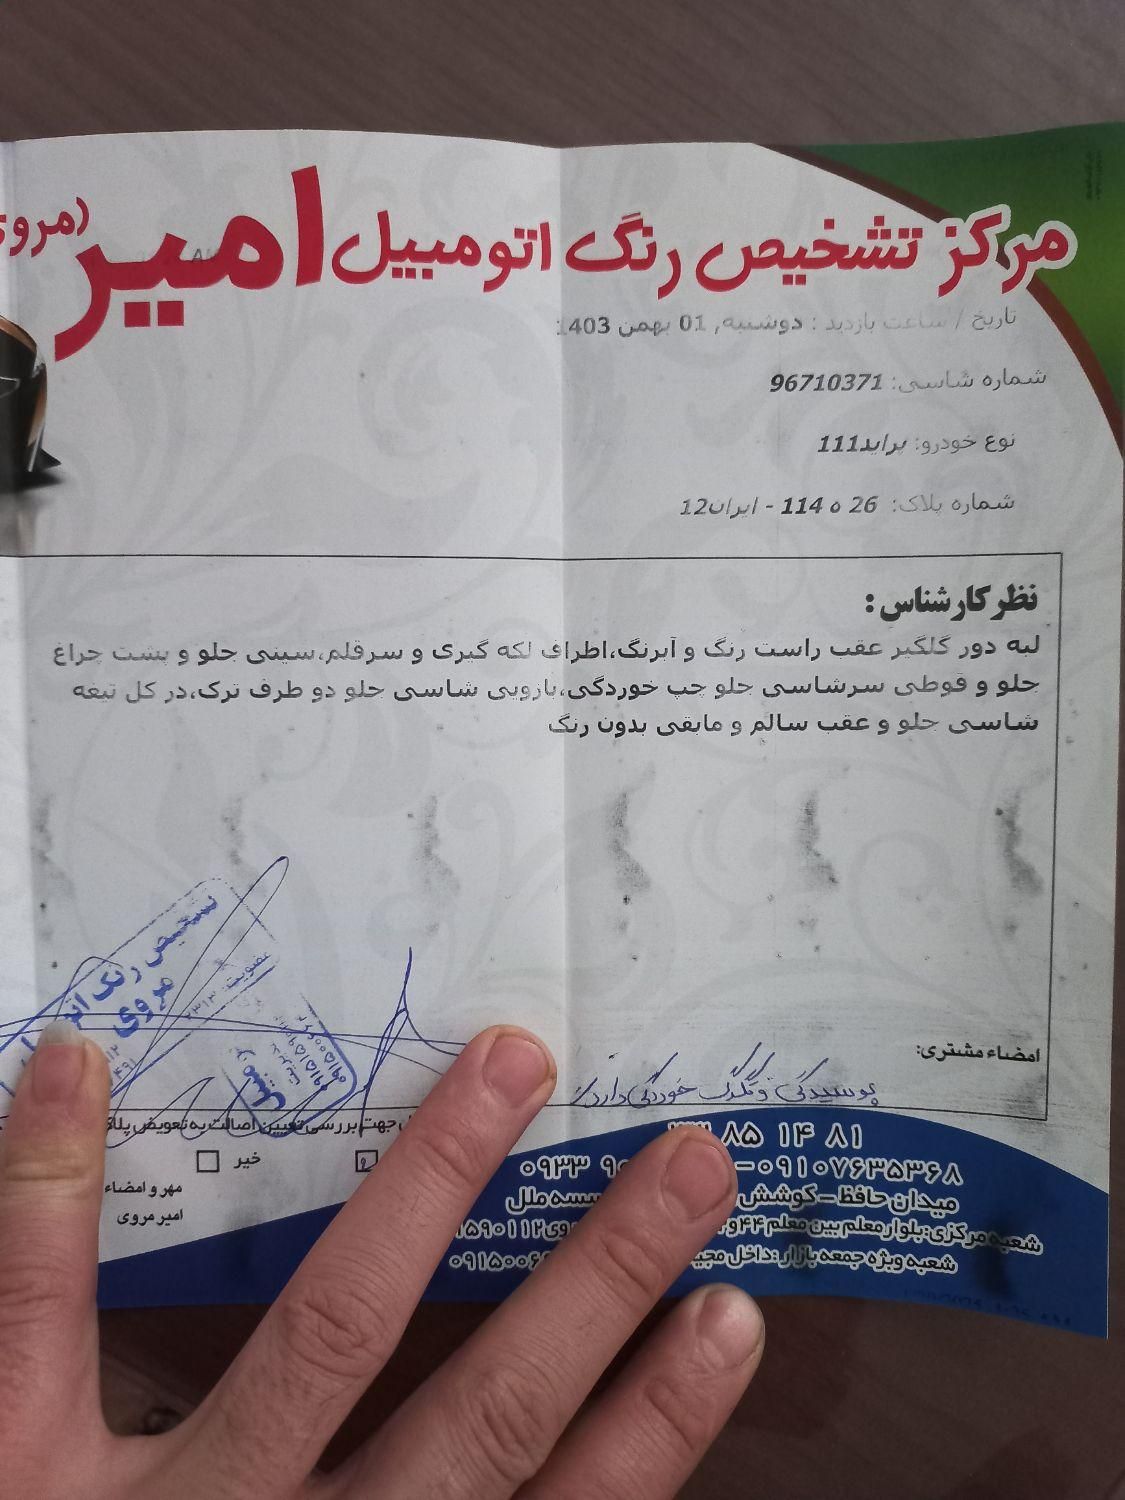 مرکز تشخیص رنگ اتومبیل امیر (مروی
تاریخ / ساعت بازدید : دوشنبه, 01 بهمن 1403
شماره شاسی: 96710371
نوع خودرو: پراید111
شماره پلاک: 26 ه 114 - ایران12
نظر کارشناس :
لبه دور گلگیر عقب راست رنگ و آبرنگ،اطراف لکه گیری و سرقلم،سینی جلو و پشت چراغ
جلو و قوطی سرشاسی جلو چپ خوردگی،بارویی شاسی جلو دو طرف ترک،در کل تیغه
شاسی جلو و عقب سالم و مابقی بدون رنگ
تشخیص رنگ
مروی
عضویت: ۲۳۱۳
امضاء مشتری:
پوسیدگی و تگرگ خوردگی دارد
جهت بررسی تعیین اصالت به تعویض پلاک
خیر
مهر و امضاء
امیر مروی
۸۵ ۱۴ ۸۱
۰۹۳۳ ۹۰ -۰۹۱۰۷۶۳۵۳۶۸
میدان حافظ - کوشش سسه ملل
شعبه مرکزی:بلوار معلم بین معلم ۴۴ و
شعبه ویژه جمعه بازار :داخل مجی ۰۹۱۵۰۰۶